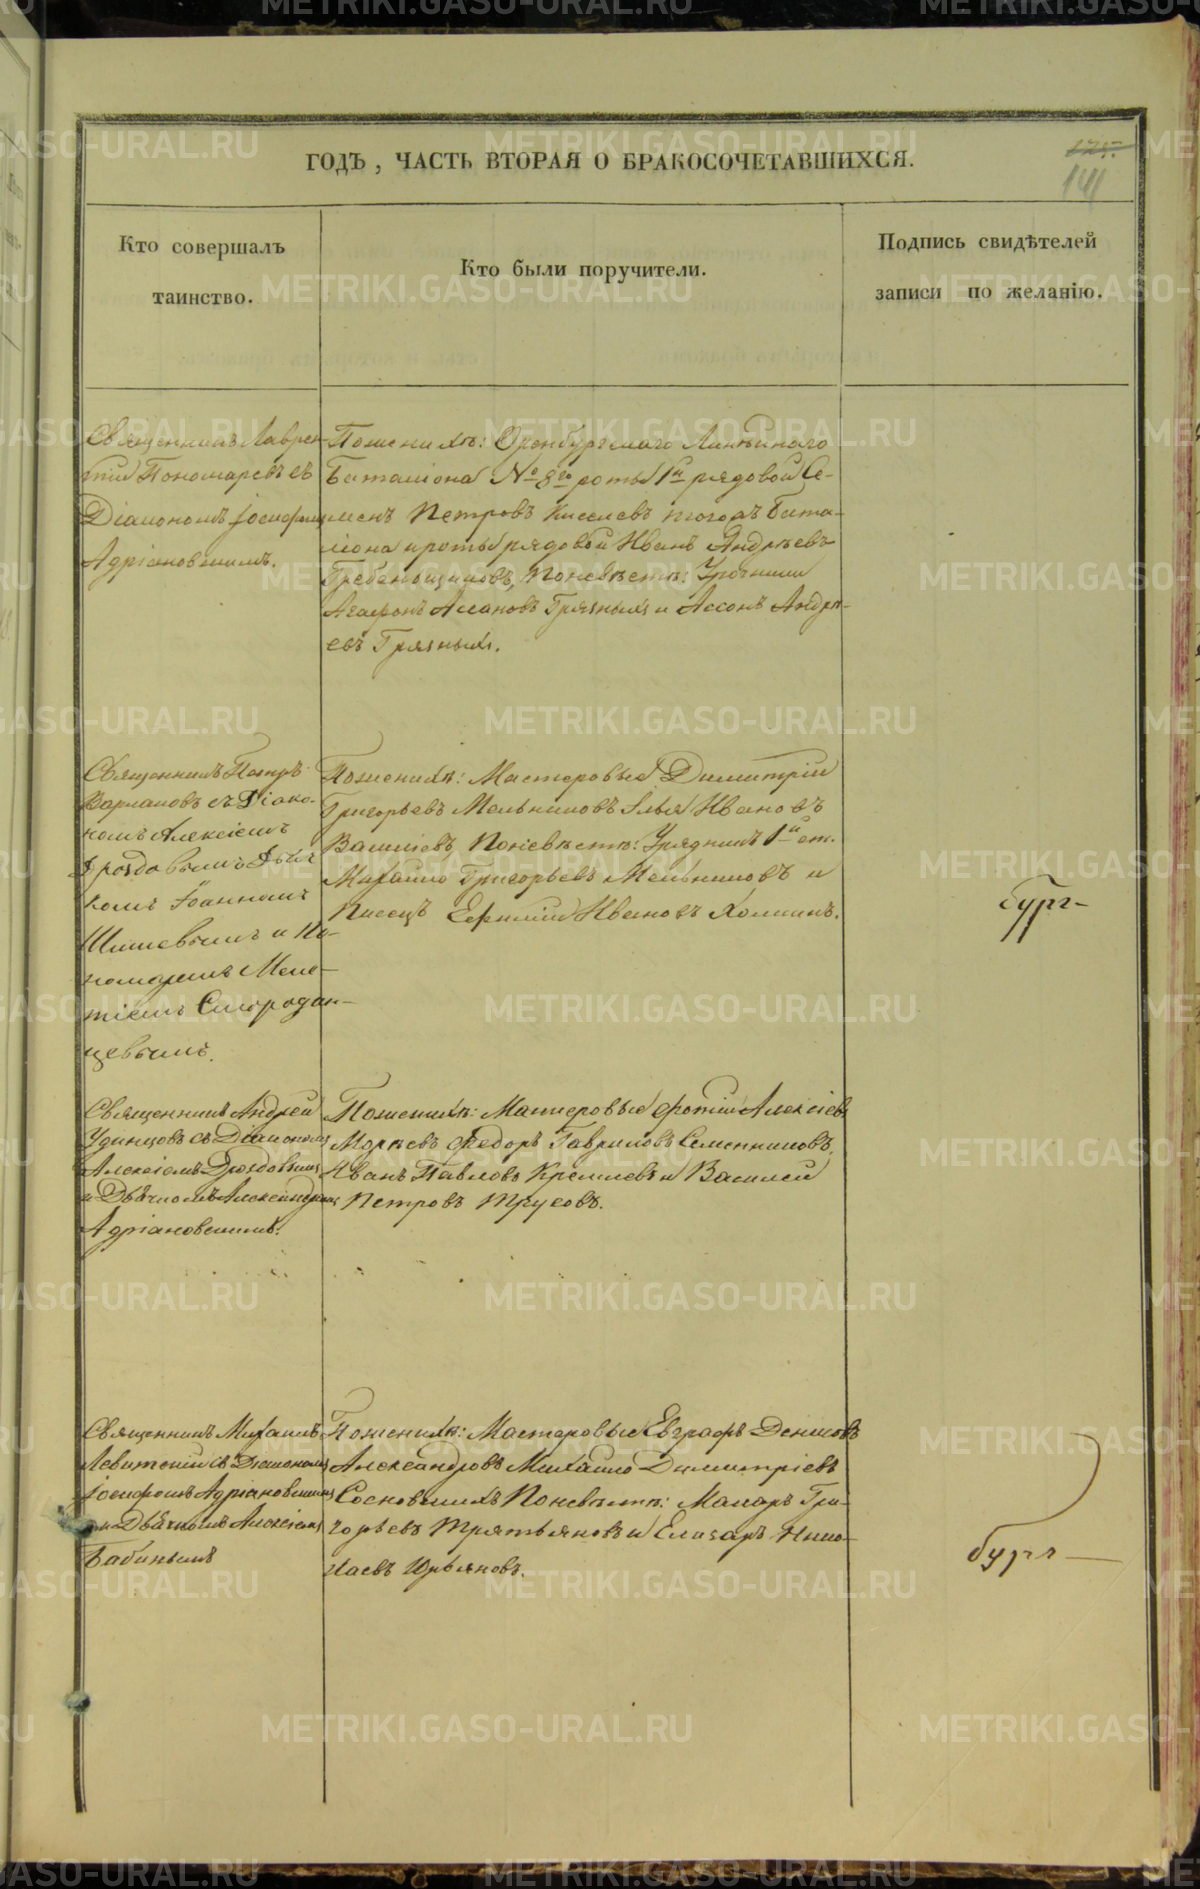 ГОДЪ, ЧАСТЬ ВТОРАЯ О БРАКОСОЧЕТАВШИХСЯ.
175.
141
Кто совершалъ
таинство.
Кто были поручители.
Подпись свидѣтелей
записи по желанію.
Священникъ Лаврен-
тій Пономаревъ съ
Діакономъ Іосифомъ
Адріановскимъ.
По женихѣ: Оренбургскаго Линѣйнаго
Баталіона № 8го роты 1й рядовой Се-
менъ Петровъ Киселевъ и того жъ бата-
ліона и роты рядовой Иванъ Андреевъ
Гребенщиковъ, по невѣстѣ: Урочники
Агафонъ Грязныхъ и Ассонъ Андре-
евъ Грязныхъ.
Священникъ Петръ
Варлаковъ съ Діако-
номъ Алексіемъ
Дроздовымъ Дьяч
комъ Іоанномъ
Шишевымъ и По-
номаремъ Меле-
тіемъ Смородин-
цевымъ.
По женихѣ: Мастеровые Димитрій
Григорьевъ Мельниковъ Илья Ивановъ
По невѣстѣ: Урядникъ 1й ст.
Михайло Григорьевъ Мельниковъ и
Писецъ Ефимій Ивановъ
бург-
Священникъ Андрей
Удинцовъ съ Діакономъ
Алексіемъ Дроздовымъ
и Дьячкомъ Александромъ
Адріановскимъ.
По женихѣ: Мастеровые Фотій Алексіевъ
Федоръ Гавриловъ
Иванъ Павловъ Кремлевъ и Василій
Петровъ Трусовъ.
Священникъ Михаилъ
Левитскій съ Діакономъ
Іосифомъ Адріановскимъ
и Дьячкомъ Алексіемъ
Бабинымъ
По женихѣ: Мастеровые Евграфъ Денисовъ
Александровъ Михайло Димитріевъ
Сосновскихъ По невѣстѣ: Макаръ Гри-
горьевъ Третьяковъ и Елизаръ Нико-
лаевъ
бургъ
METRIKI.GASO-URAL.RU